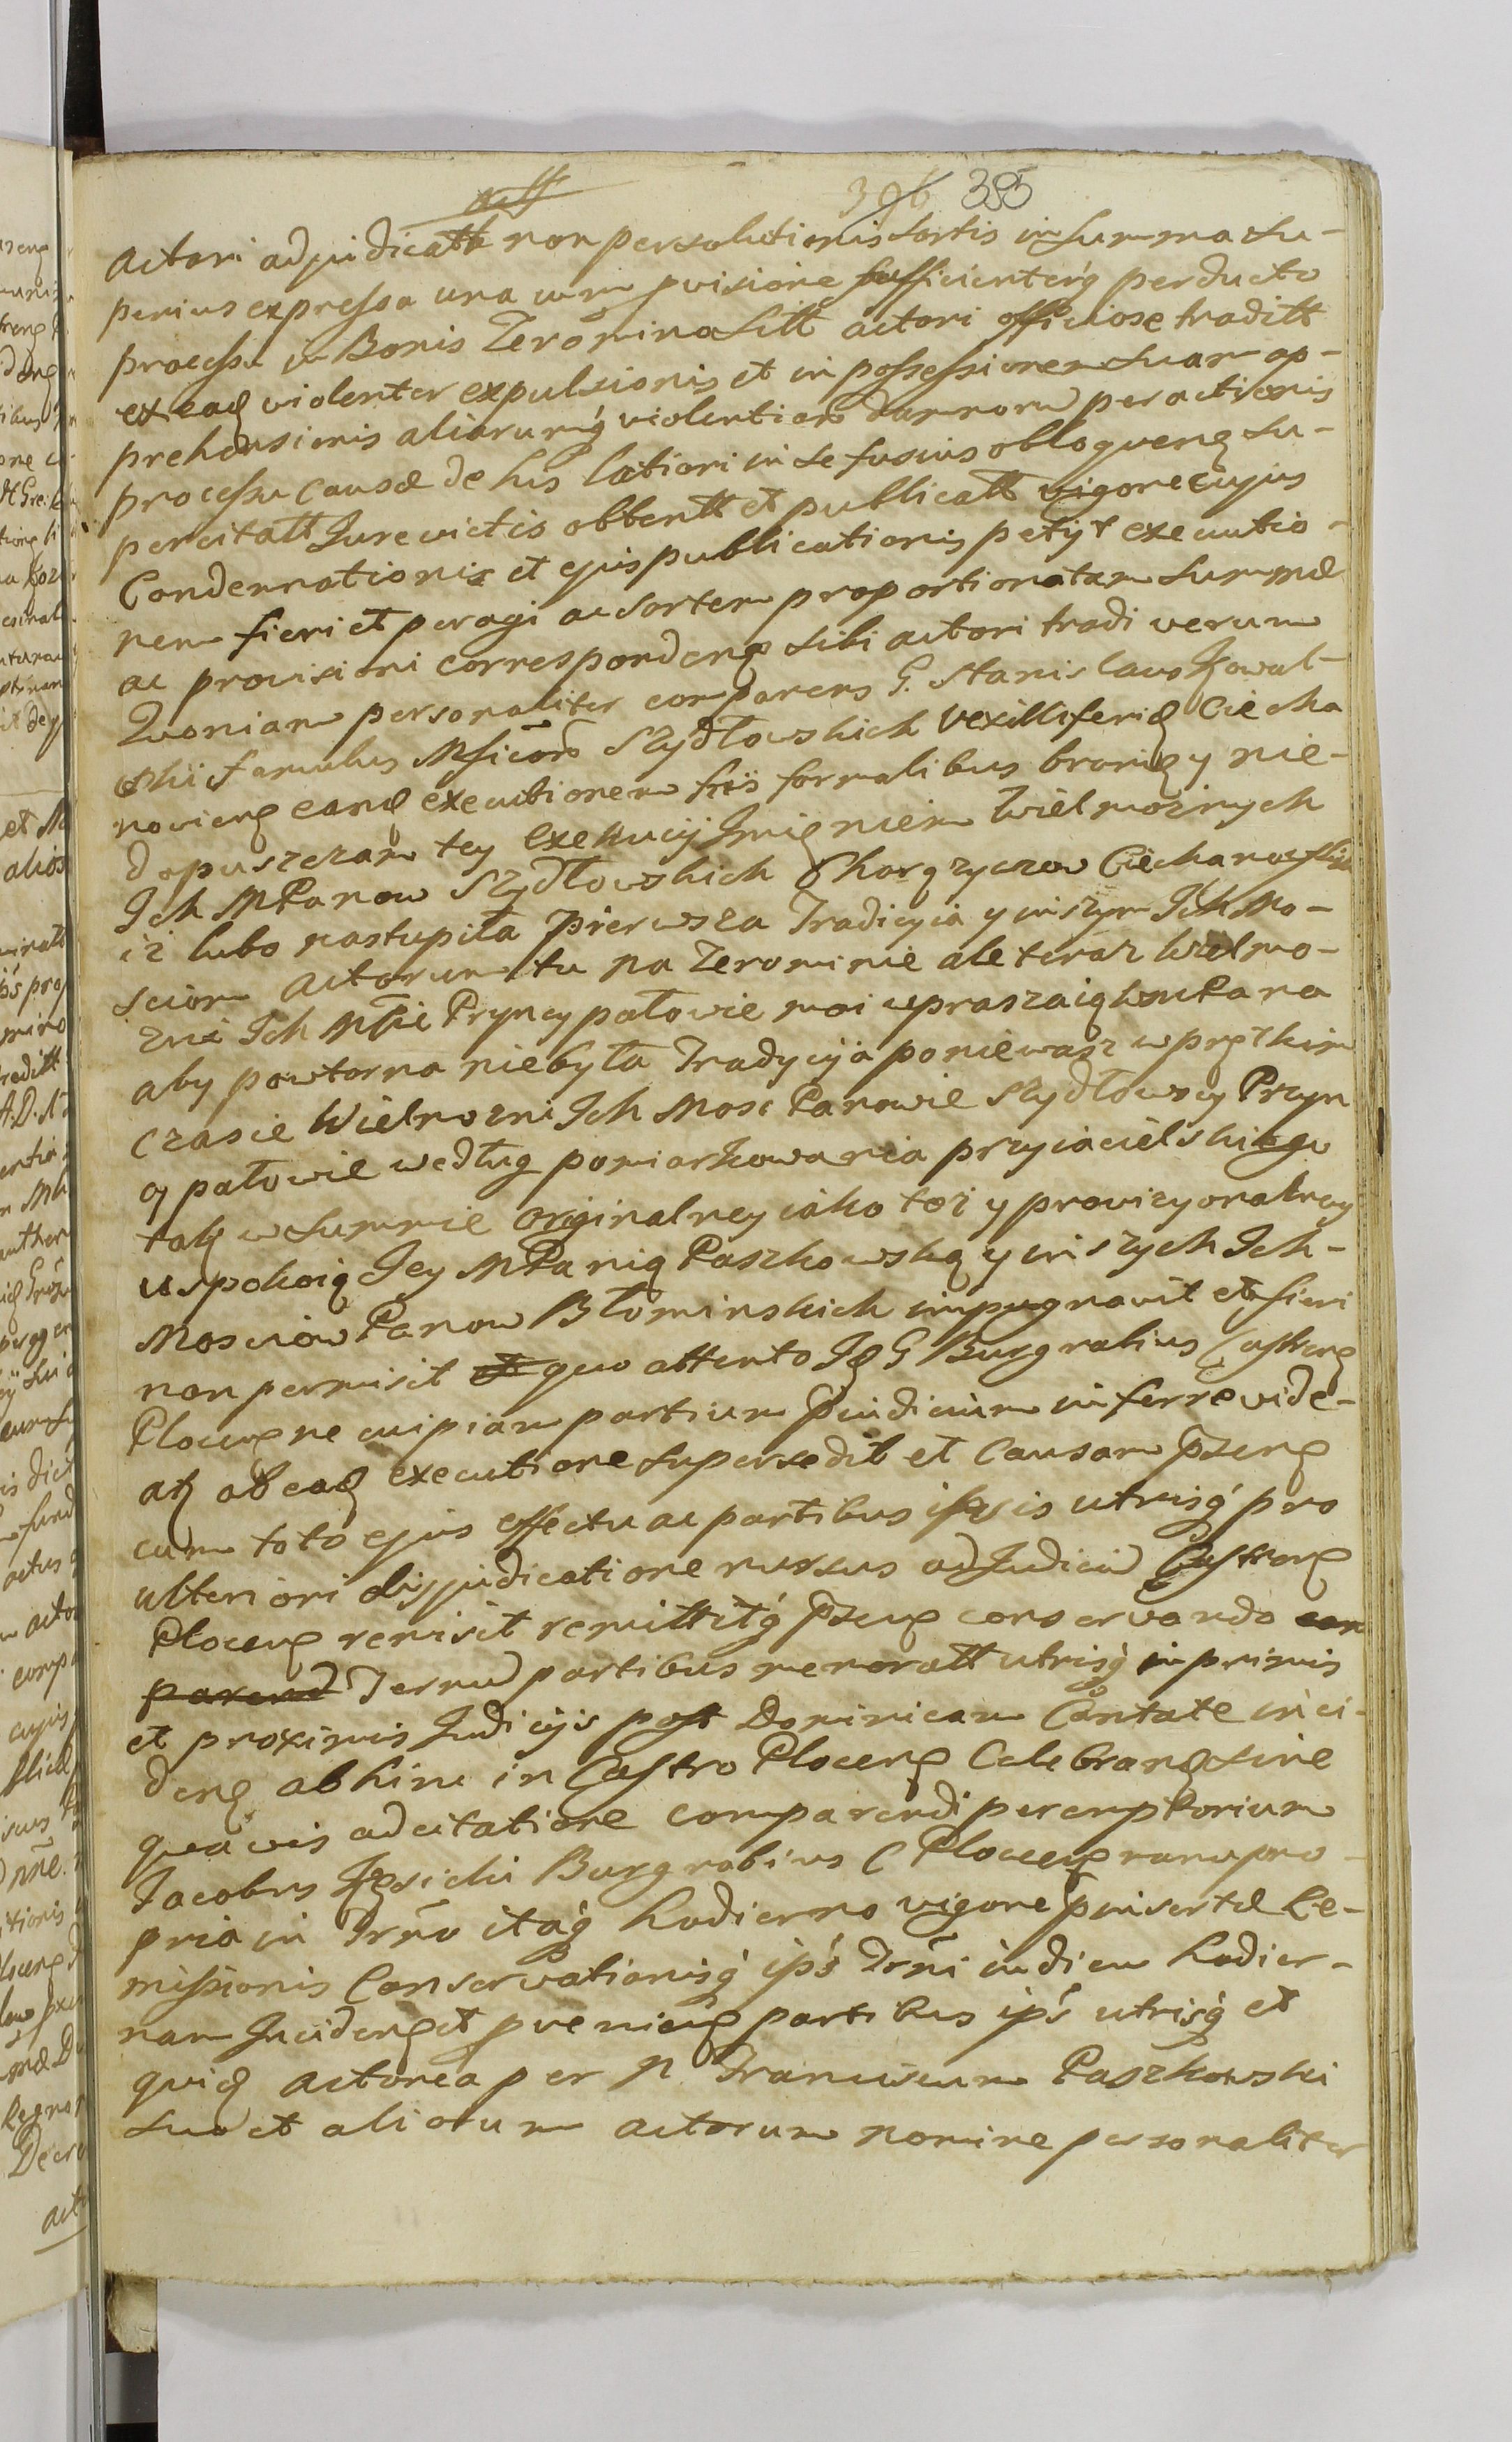 act
396 395
actori adjudicatt non persolutionis sortis in summa su-
perius expressa una cum pvisione sufficienterq́ perducto
processu in Bonis Zeromino sitt actori officiose traditt
ex eadę violenter expulsionis et in possessionem suam ap-
prehensionis aliarumq́ violentiarō damnorū peractionis
processu causæ de his latiori in se fusius obloquenę su-
per citatt Jurevictis obtentt et publicatt vigore cujus
Condemnationis et ejus publicationis petijt executio-
nem fieri et peragi ac sortem proportionatam summæ
ac provisioni correspondenę sibi actori tradi verum
Quoniam personaliter comparens G. Stanislaus Kowal-
skii famulus Mficorō Szydłowskich Vexilliferidę Ciecha
novienę eandę executionem his formalibus bronię y nie-
dopuszczam tey Exekucyi Jmięniem Wielmoznych
Ich MPanow Szydłowskich Chorązyczow Ciechanowskich
iz lubo nastupiła pierwsza Tradicyia y inszym Ich Mo-
sciom actorum tu na Zerominie ale teraz Wielmo-
zni Ich Mście Pryncypałowie moi upraszaią WmPana
aby powtorna niebyła Tradycyia poniewasz w prętkim
czasie Wielmozni Ich Mosc Panowie Szydłowscy Pryn
cypałowie według pomiarkowania przyiacielskiego
tak w summie originalney iako tez y prowizyonalney
uspokoią Jey MPanią Paszkowską y inszych Ich-
Mosciow Panow Błominskich impugnavit et fieri
non permisit quo attento Idę G Burgrabius Castrenę
Plocenę ne cuipiam partium pjudicium inferre vide-
atz ab eadę executione supersedit et Causam psenę
cum toto ejus effectu ac partibus ipsis utrisq́ pro
ulteriori dijudicatione rursus ad Judiciū Castrenę
Plocenę remisit remittitq́ psenę conservando com
parend Termū partibus memoratt utrisq́ in primis
et proximis Judicijs post Dominicam Cantate inci-
denę abhinc in Castro Plocenę Celebranę sine
quavis adcitatione comparendi peremptorium
Jacobus Kęsicki Burgrabius C Plocenę manu pro-
pria in Trm̄o itaq́ hodierno vigore pinsertæ Re-
missionis Conservationisq́ ips̄ Trm̄i in diem hodier-
nam Incidenę et pvenienę partibus ips̄ utrisq́ et
quidę actorea per N Franciscum Paszkowski
suo et aliorum actorum nomine personaliter